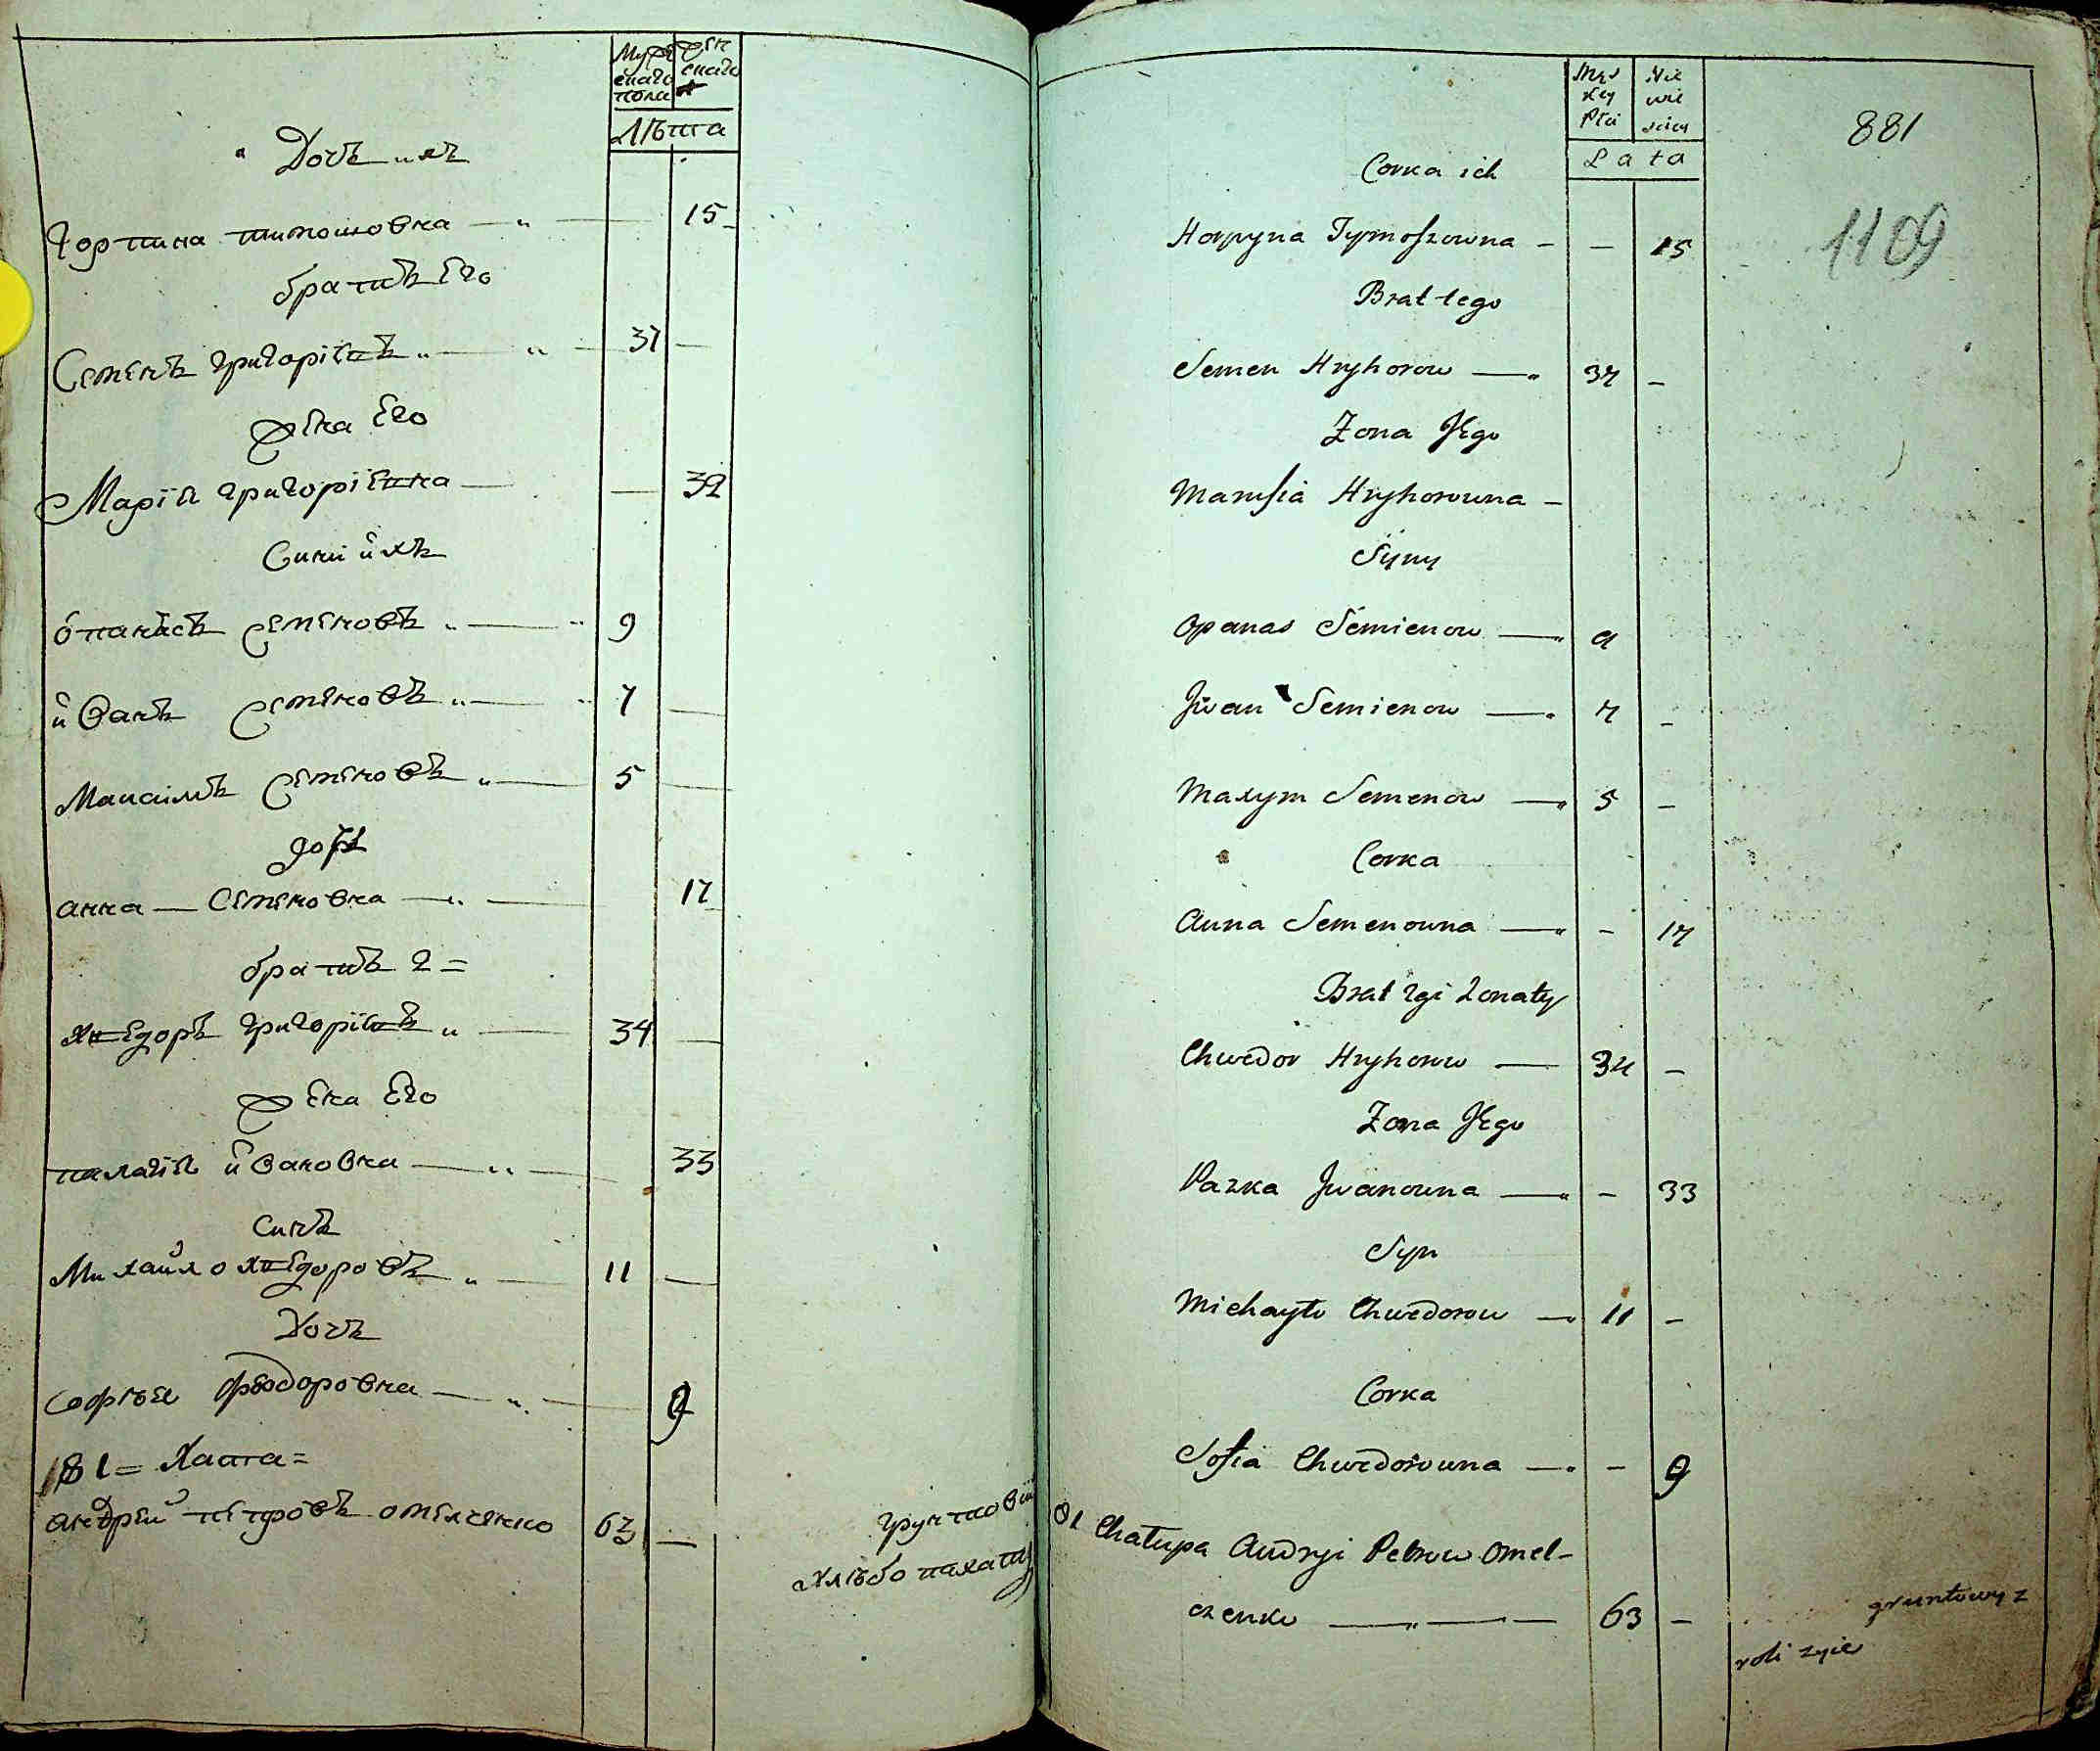 Мужескаго пола
Женскаго
Лѣта
Дочь ихъ
Горпина тимошовна 15
братъ Его
Семенъ григоріевъ 37 —
жена Его
Марія григоріевна — 32
Сини ихъ
опанасъ Семеновъ 9
иванъ Семеновъ 7 —
Максимъ Семеновъ 5 —
дочь
анна — Семеновна 17
братъ 2 =
хведоръ григоріевъ 34 —
жена Его
палагія ивановна 33
синъ
Михайло хведоровъ 11 —
Дочь
софія феодоровна 9
181 = Хата =
андрей петровъ омелченко 63 —
грунтовий
хлѣбопахатц
881
1109
Męs
key
Płci
Nie
wie
sciey
Lata
Corka ich
Horpyna Tymoszowna — — 15
Brat tego
Semen Hryhorow — 37 —
Zona Jego
Marusia Hryhorowna —
Syny
Opanas Semienow — 9
Jwan Semienow — 7 —
Maxym Semenow — 5 —
Corka
Anna Semenowna — — 17
Brat 2gi żonaty
Chwedor Hryhorow — 34 —
Zona Jego
Pazka Jwanowna — — 33
Syn
Michayło Chwedorow — 11 —
Corka
Sofia Chwedorowna — — 9
81 Chałupa Andryi Petrow Omel-
czenko — — 63 —
gruntowy z
roli zyie